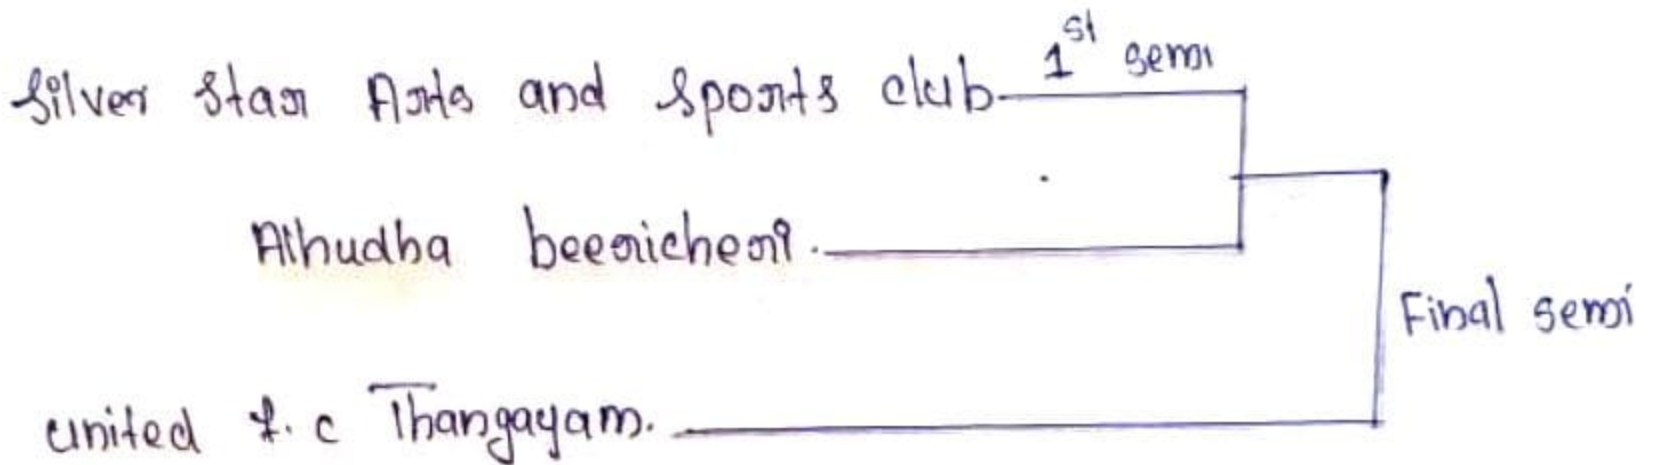 Silver Star Arts and Sports club 1st semi
Alhudha beericheri.
Final semi
united f.c Thangayam.